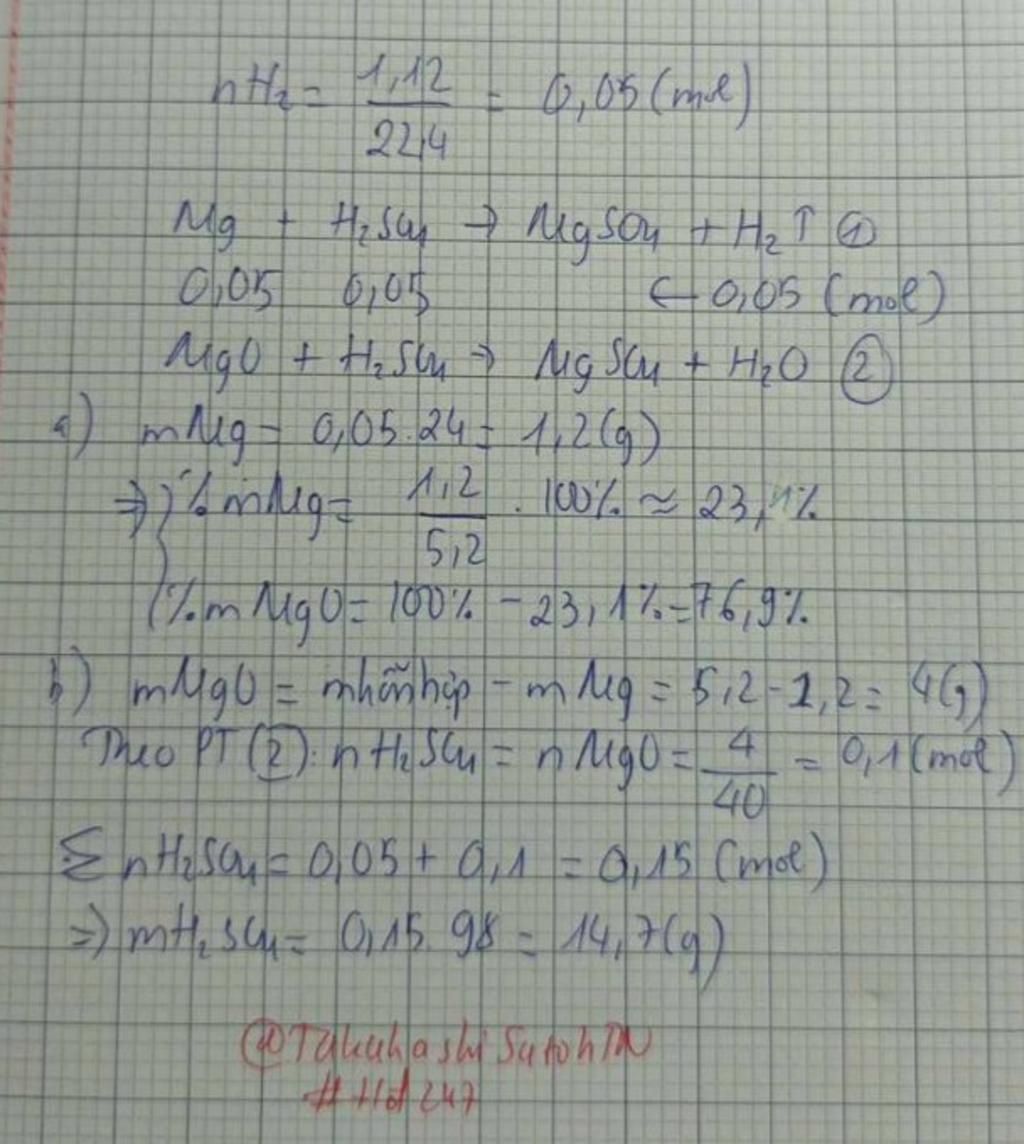 nH₂ = 1,12 / 22,4 = 0,05 (mol)
Mg + H₂SO₄ → MgSO₄ + H₂↑ ①
0,05 0,05 ← 0,05 (mol)
MgO + H₂SO₄ → MgSO₄ + H₂O ②
a) mMg = 0,05.24 = 1,2(g)
⇒ { %mMg = 1,2 / 5,2 . 100% ≈ 23,1%
{ %mMgO = 100% - 23,1% = 76,9%
b) mMgO = mhỗnhợp - mMg = 5,2 - 1,2 = 4(g)
Theo PT (2): nH₂SO₄ = nMgO = 4 / 40 = 0,1 (mol)
Σ nH₂SO₄ = 0,05 + 0,1 = 0,15 (mol)
⇒ mH₂SO₄ = 0,15.98 = 14,7(g)
@TakahashiSatohTN
#Hd247